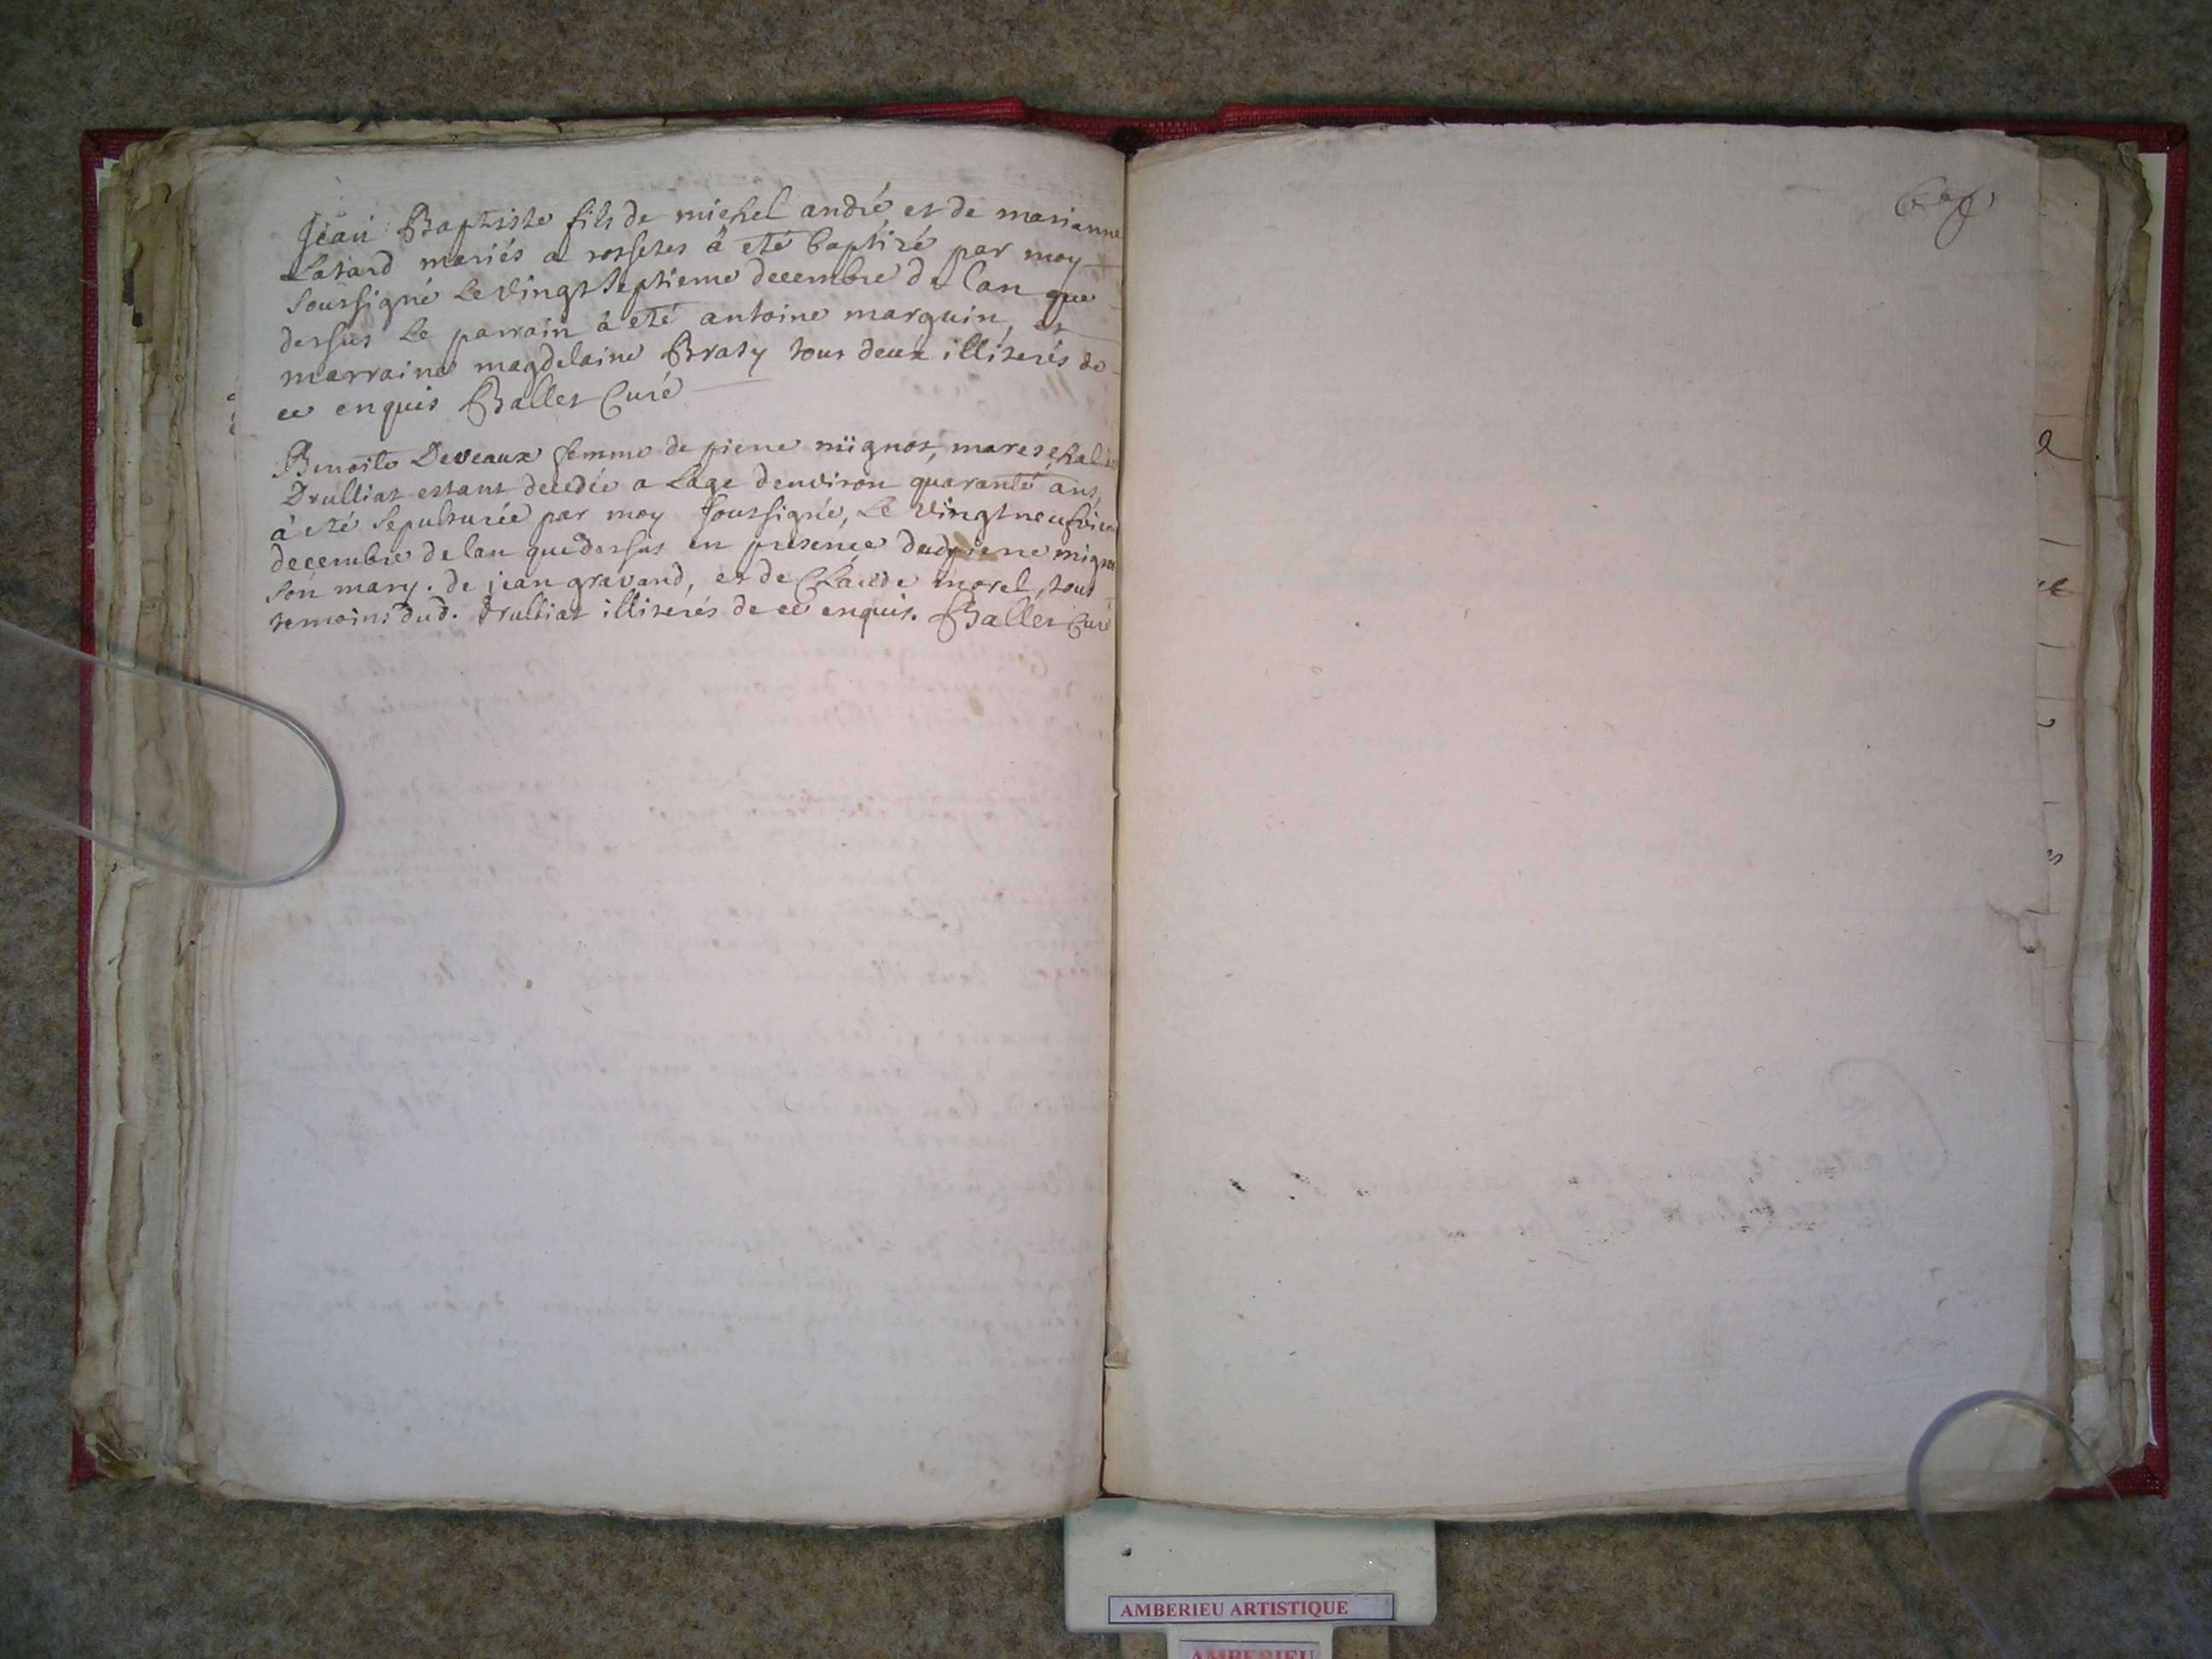 Jean Baptiste fils de michel andré et de marianne
Latard mariés a rossetes à eté baptizé par moy
soussigné Le vingt septieme decembre de lan que
dessus Le parrain à eté antoine marguin, et
marraine magdelaine Braty tous deux illiterés de
ce enquis Ballet Curé
Benoite Deveaux femme de pierre mignot, mareschal
Drulliat estant decedée a Lage denviron quarante ans,
à eté sepulturée par moy soussigné, Le vingt neufvieme
decembre de lan que dessus en presence dud pierre mignot
son mary. de jean gravand, et de Claude morel, tous
temoins dud. Drulliat illiterés de ce enquis. Ballet Curé
AMBERIEU ARTISTIQUE
AMBERIEU